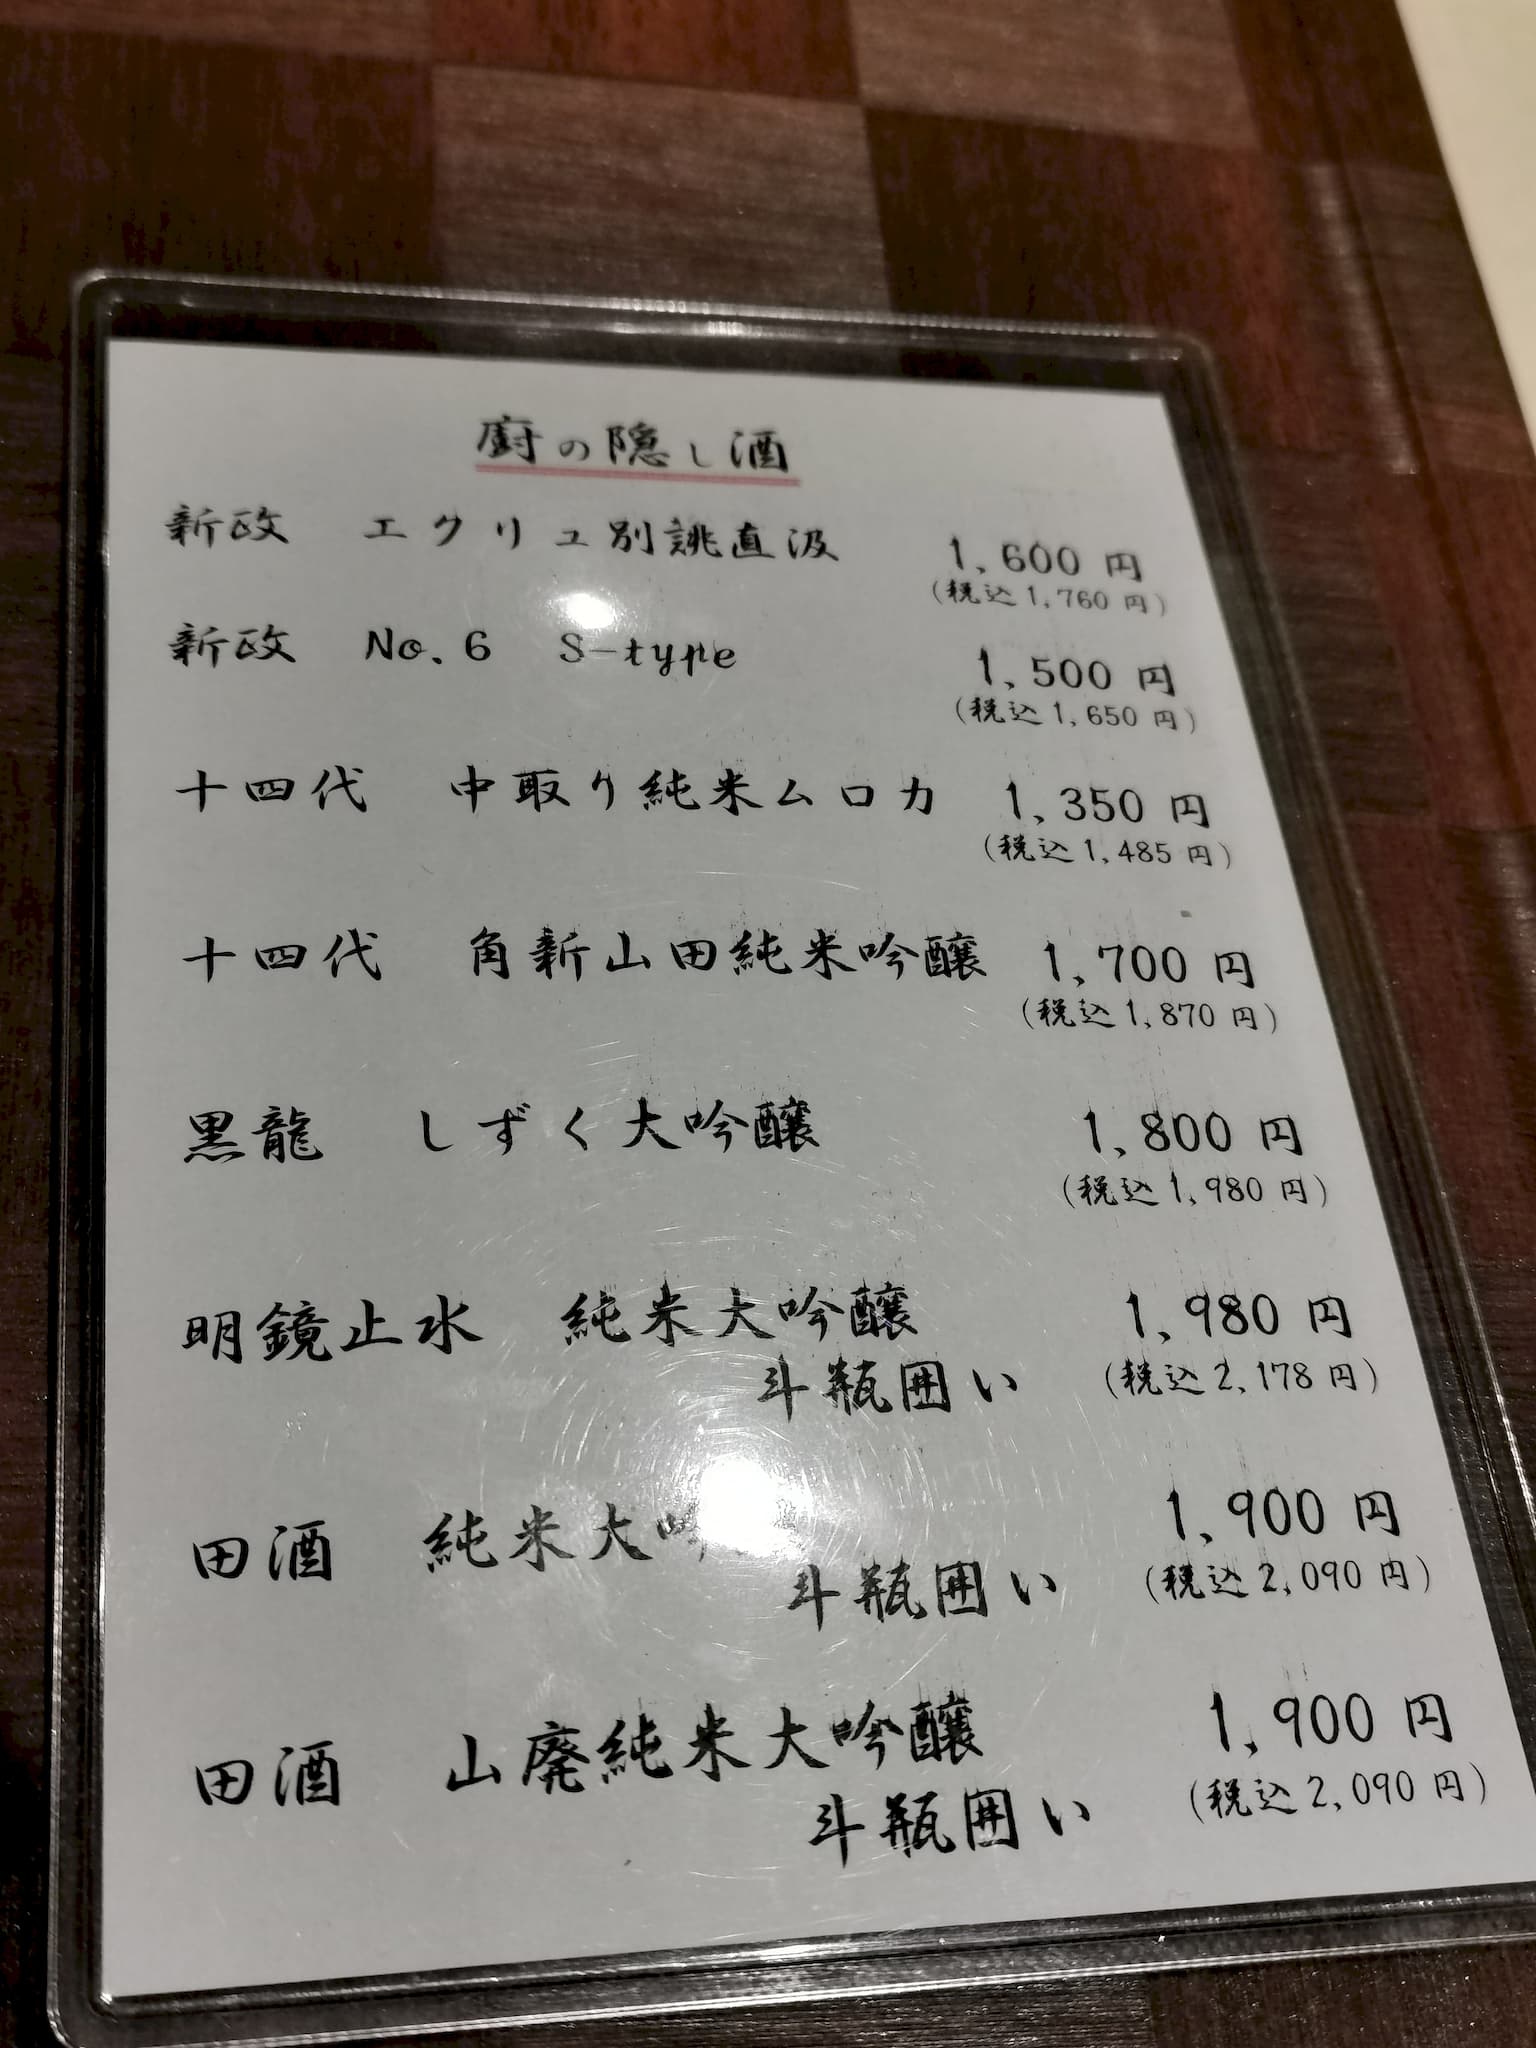 廚の隠し酒
新政 エクリュ別誂直汲 1,600円
(税込1,760円)
新政 No.6 S-type 1,500円
(税込1,650円)
十四代 中取り純米ムロカ 1,350円
(税込1,485円)
十四代 角新山田純米吟醸 1,700円
(税込1,870円)
黒龍 しずく大吟醸 1,800円
(税込1,980円)
明鏡止水 純米大吟醸 1,980円
斗瓶囲い (税込2,178円)
田酒 純米大 1,900円
斗瓶囲い (税込2,090円)
田酒 山廃純米大吟醸 1,900円
斗瓶囲い (税込2,090円)